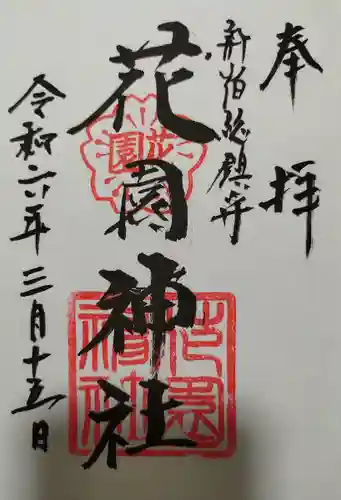 奉拝
新宿総鎮守
花園神社
令和六年三月十五日
花園
花園神社